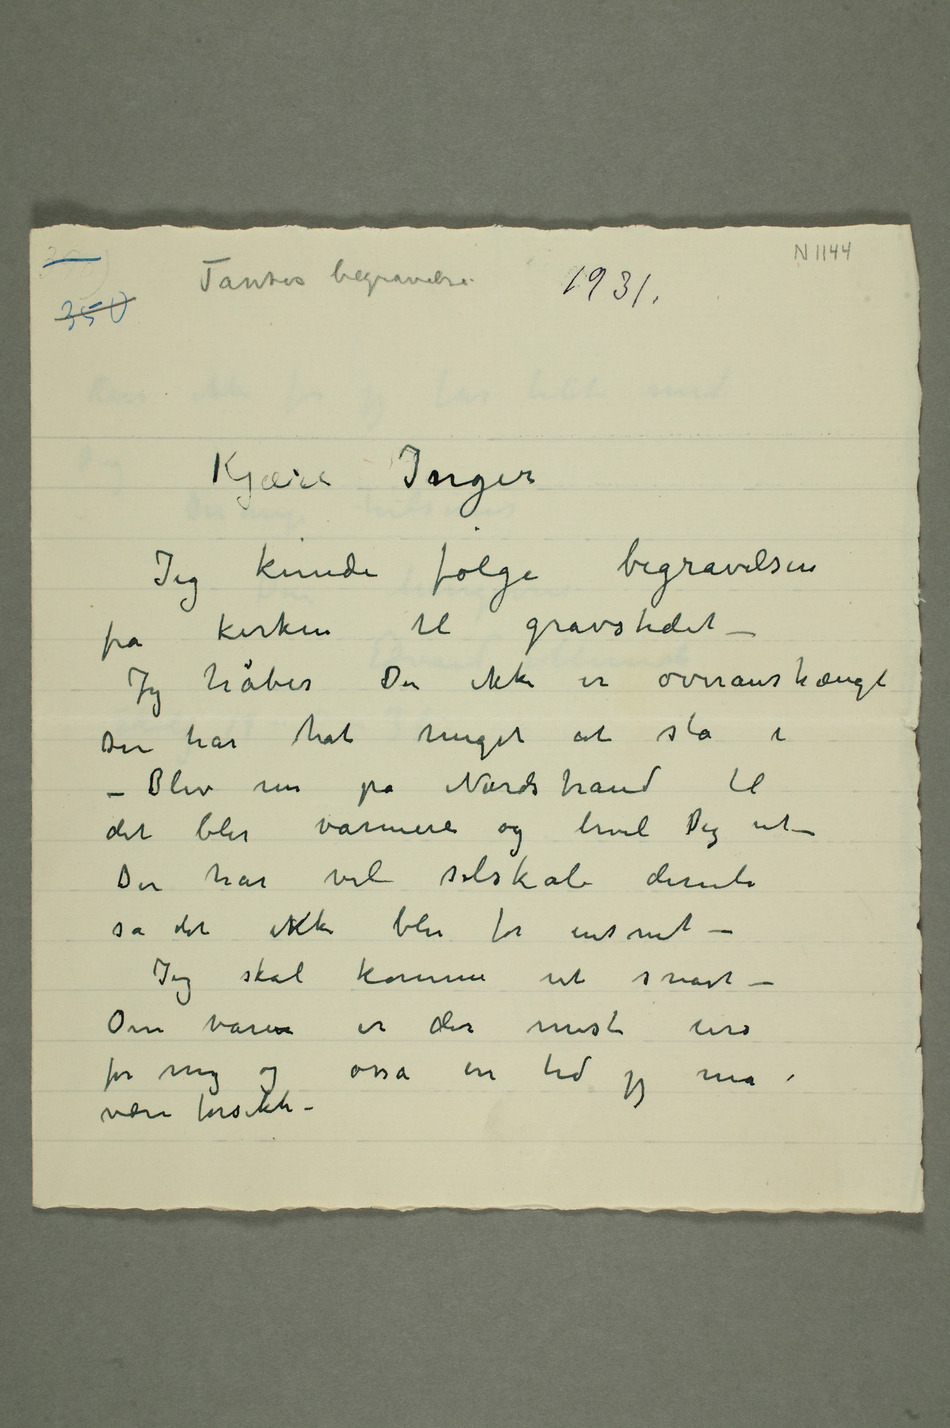 N 1144
Tantes begravelse
1931.
350
Kjære Inger
Jeg kunde følge begravelsen
fra kirken til gravstedet –
Jeg håber Du ikke er overanstrængt
Du har hat meget at stå i
– Bliv nu på Nordstrand til
det blir varmere og hvil Dig ut –
Du har vel selskab derute
så det ikke blir for ensomt –
Jeg skal komme ut snart –
Om våren er der mest
for mig og osså en tid jeg må
være forsikti –